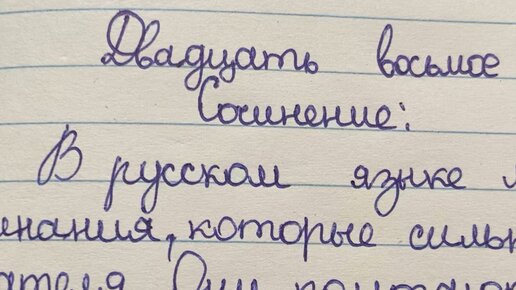 Двадцать восьмое
Сочинение:
В русском языке
инания, которые силь
ателя. Они